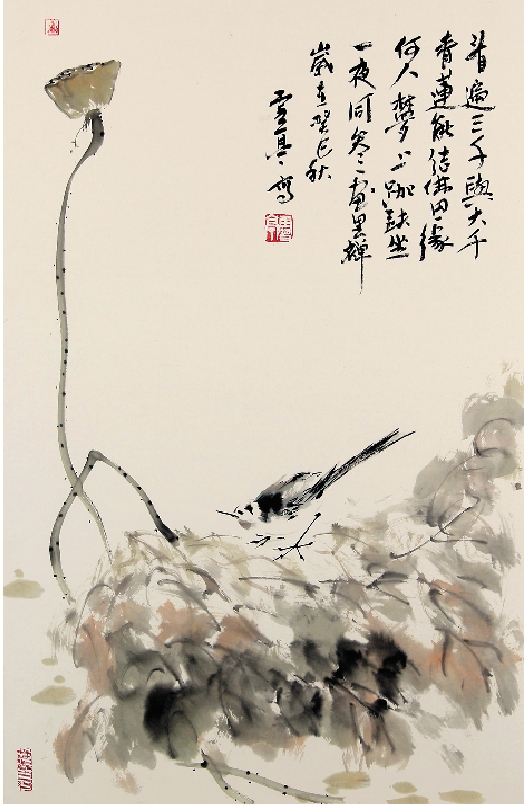 看遍三千與大千
青蓮能結佛田緣
何人夢上跏趺坐
一夜同參畫裏禪
歲在癸巳秋
雲亭寫